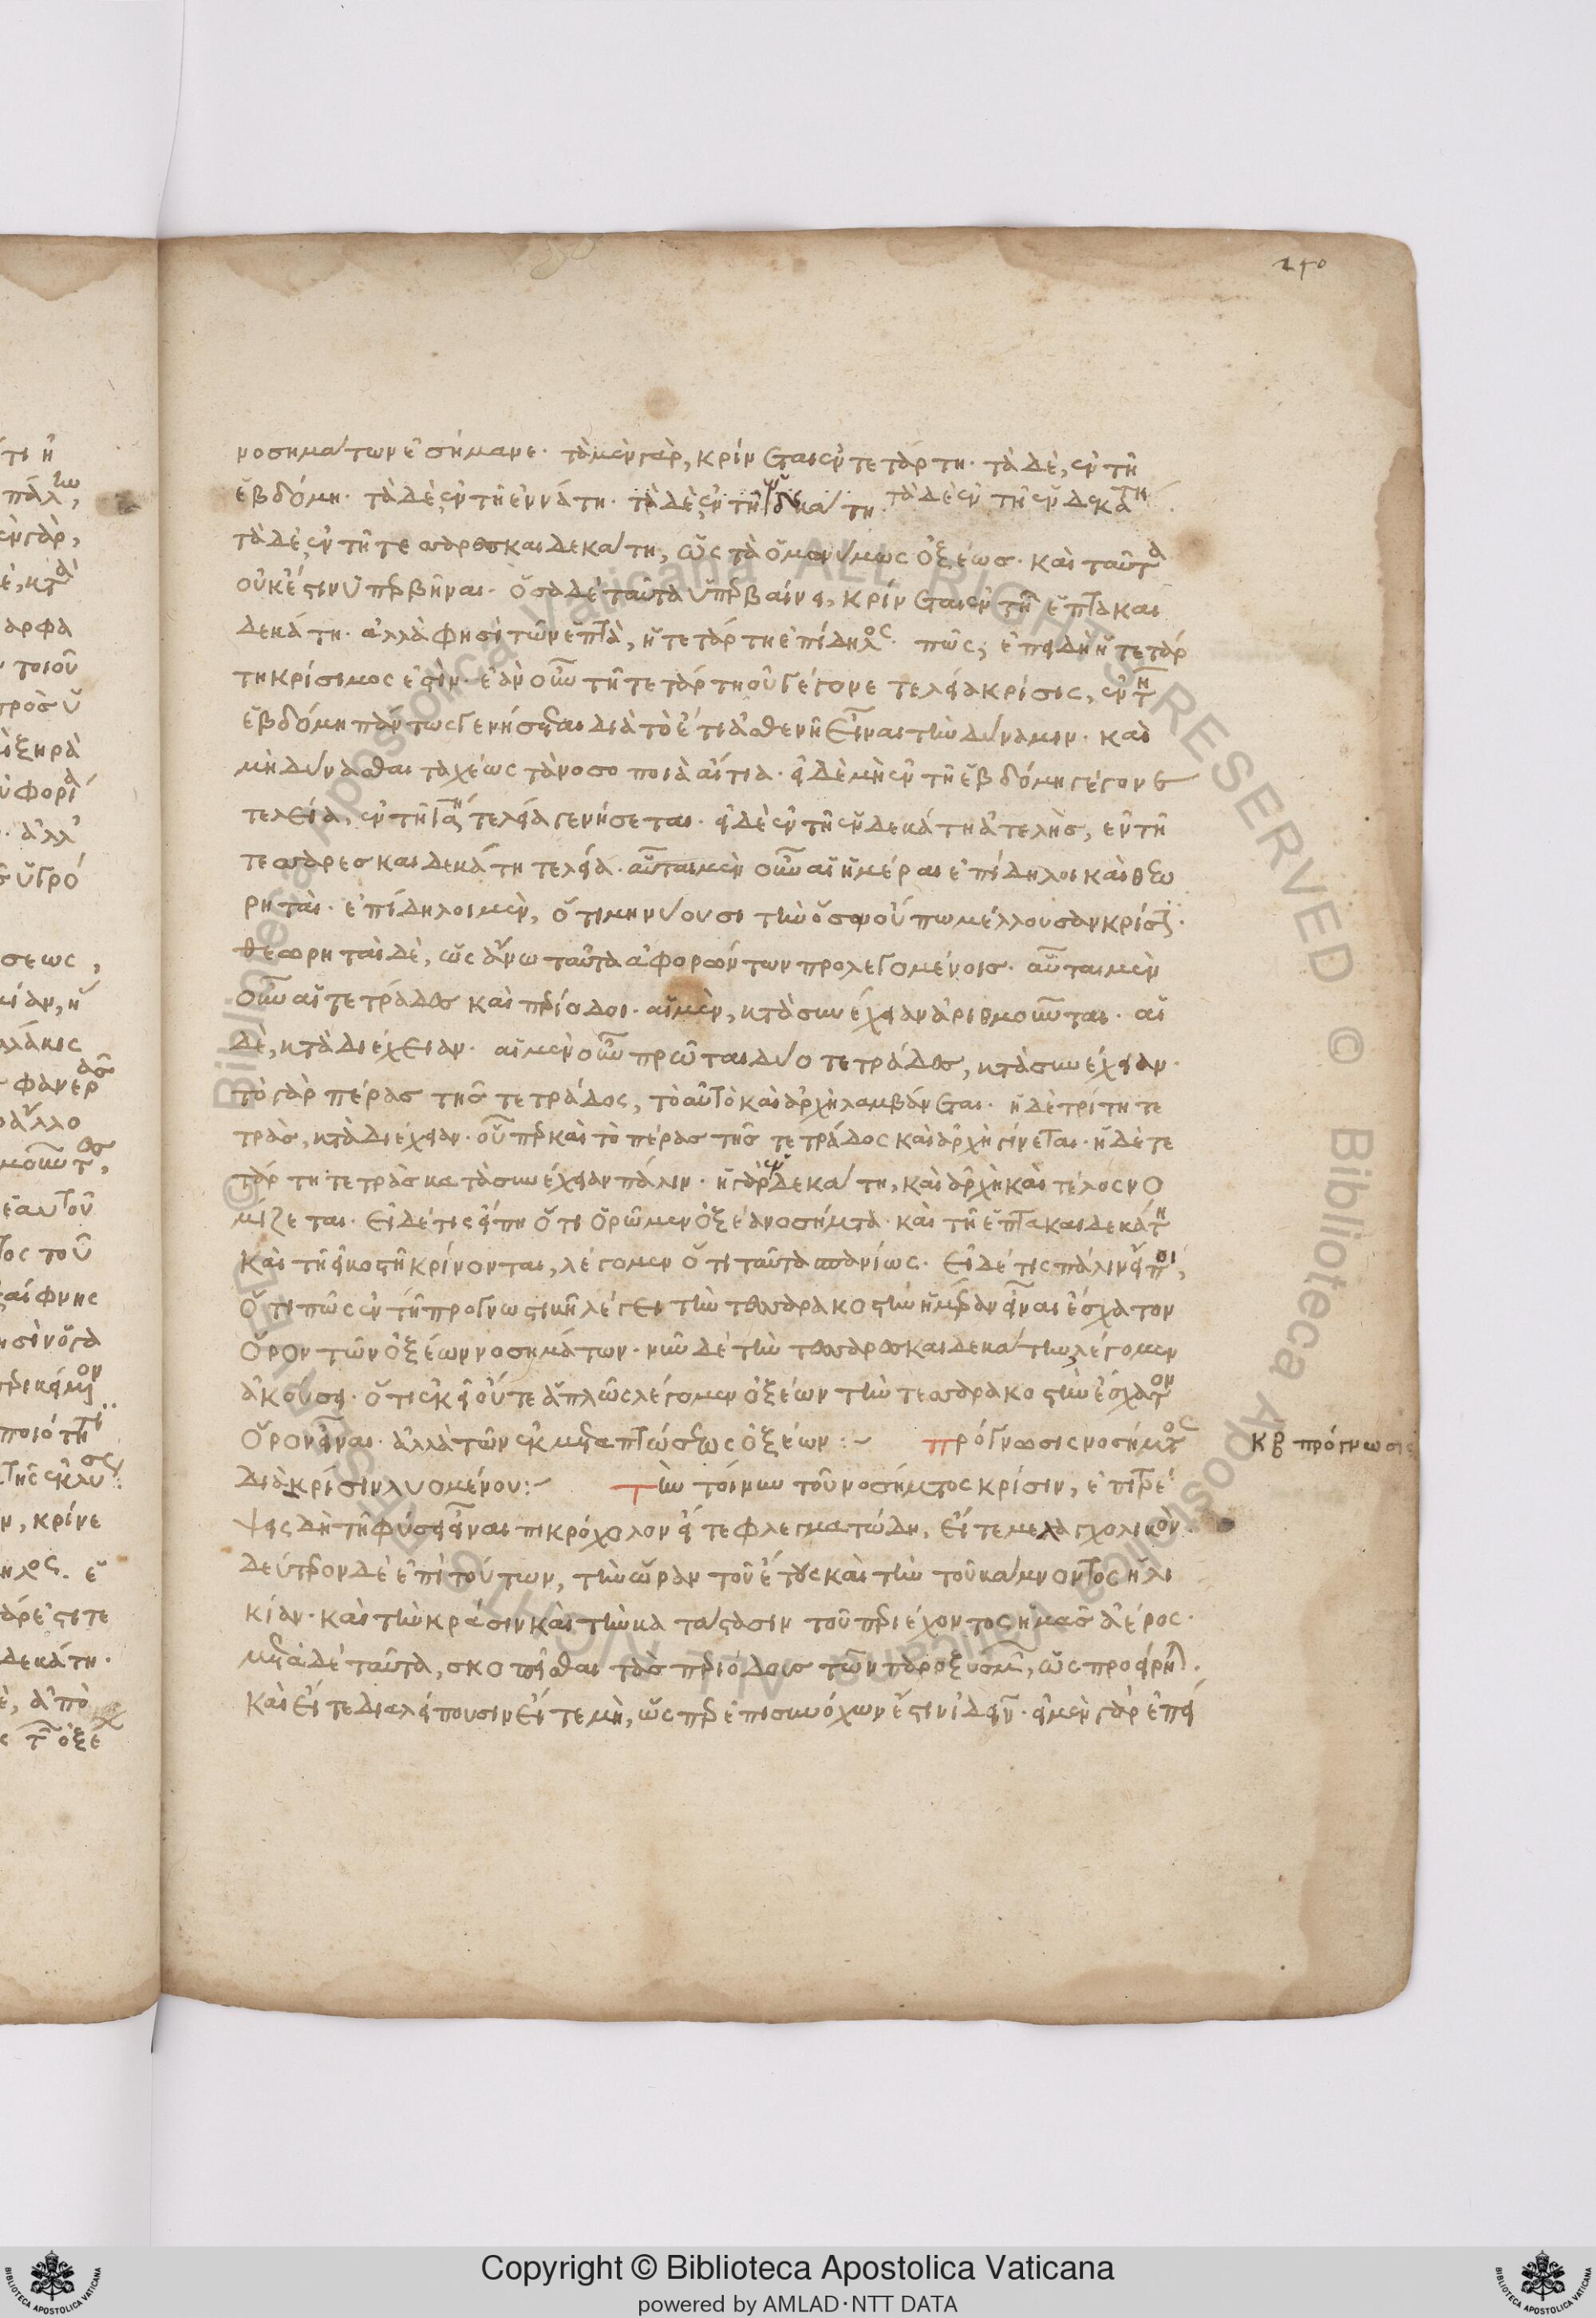 250
νοσημάτων ἐσήμανε· τὰ μὲν γὰρ, κρίνεται ἐν τετάρτη· τὰ δὲ, ἐν τῆ
ἑβδόμη· τὰ δὲ ἐν τῆ ἐννάτη· τὰ δὲ ἐν τῆ δεκάτη· τὰ δὲ ἐν τῆ ἑνδεκάτη
τὰ δὲ ἐν τῆ τεσσαρεσκαιδεκάτη, ὡς τὰ ὁμωνύμως ὀξέως· καὶ ταύτα
οὐκ ἔστιν ὑπερβῆναι· ὅσα δὲ ταῦτα ὑπερβαίνει, κρίνεται ἐν τῆ ἑπτακαι
δεκάτη· ἀλλὰ φησὶ τῶν ἑπτὰ, ἡ τετάρτη ἐπίδηλος· πῶς; ἐπειδὴ ἡ τετάρ
τη κρίσιμος ἐστὶν· ἐὰν οὖν τῆ τετάρτη οὐ γέγονε τελεία κρίσις, ἐν τῆ
ἑβδόμη πάντως γενήσεται διὰ τὸ ἔτι ἀσθενῆ εἶναι τὴν δύναμιν· καὶ
μὴ δύνασθαι ταχέως τὰ νοσοποιὰ αἴτια· εἰ δὲ μὴ ἐν τῆ ἑβδόμη γέγονε
τελεία, ἐν τῆ ιαη τελεία γενήσεται· εἰ δὲ ἐν τῆ ἑνδεκάτη ἀτελὴς, ἐν τῆ
τεσσαρεσκαιδεκάτη τελεία· αὗται μὲν οὖν αἱ ἡμέραι ἐπίδηλοι καὶ θεω
ρηταὶ· ἐπίδηλοι μὲν, ὅτι μηνύουσι τὴν ὅσον οὔπω μέλλουσαν κρίσιν·
θεωρηταὶ δὲ, ὡς ἄνω ταῦτα ἀφορώντων προλεγομένοις· αὗται μὲν
οὖν αἱ τετράδες καὶ περίοδοι· αἱ μὲν, κατὰ συνέχειαν ἀριθμοῦνται· αἱ
δὲ, κατὰ διέχειαν· αἱ μὲν οὖν πρῶται δύο τετράδες, κατὰ συνέχειαν·
τὸ γὰρ πέρας τῆς τετράδος, τὸ αὐτὸ καὶ ἀρχὴ λαμβάνεται· ἡ δὲ τρίτη τε
τρὰς, κατὰ διέχειαν· οὐ περ καὶ τὸ πέρας τῆς τετράδος καὶ ἀρχὴ γίνεται· ἡ δὲ τε
τάρτη τετρὰς κατὰ συνέχειαν πάλιν· ἡ γὰρ ἑνδεκάτη, καὶ ἀρχὴ καὶ τέλος νο
μίζεται· εἰ δέ τις εἴπη ὅτι ὁρῶμεν ὀξέα νοσήματα· καὶ τῆ ἑπτακαιδεκάτη
καὶ τῆ εἰκοστῆ κρίνονται, λέγομεν ὅτι ταῦτα σπανίως· εἰ δέ τις πάλιν εἴποι,
ὅτι πῶς ἐν τῆ προγνωστικῆ λέγει τὴν τεσσαρακοστὴν ἡμέραν εἶναι ἔσχατον
ὅρον τῶν ὀξέων νοσημάτων· νῦν δὲ τὴν τεσσαρεσκαιδεκάτην λέγομεν
ἀκούσει· ὅτι ἐκεῖ οὔτε ἁπλῶς λέγομεν ὀξέων τὴν τεσσαρακοστὴν ἔσχατον
ὅρον εἶναι· ἀλλὰ τῶν ἐκ μεταπτώσεως ὀξέων :- πρόγνωσις νοσήματος
κβ πρόγνωσις
διὰ κρίσιν λυομένου :- Τὴν τοίνυν τοῦ νοσήματος κρίσιν, ἐπιτρέ
ψεις δὴ τῆ φύσει εἶναι πικρόχολον εἴτε φλεγματώδη, εἴτε μελαγχολικὸν
δεύτερον δὲ ἐπὶ τούτων, τὴν ὥραν τοῦ ἔτους καὶ τὴν τοῦ κάμνοντος ἡλι
κίαν· καὶ τὴν κρᾶσιν καὶ τὴν κατάστασιν τοῦ περιέχοντος ἡμᾶς ἀέρος·
μετὰ δὲ ταῦτα, σκοπεῖσθαι τὰς περιόδους τῶν παροξυσμῶν, ὡς προείρηται·
καὶ εἴτε διαλείπουσιν εἴτε μὴ, ὥσπερ ἐπὶ συνόχων ἔστιν ἰδεῖν· εἰ μὲν γὰρ ἐπεί